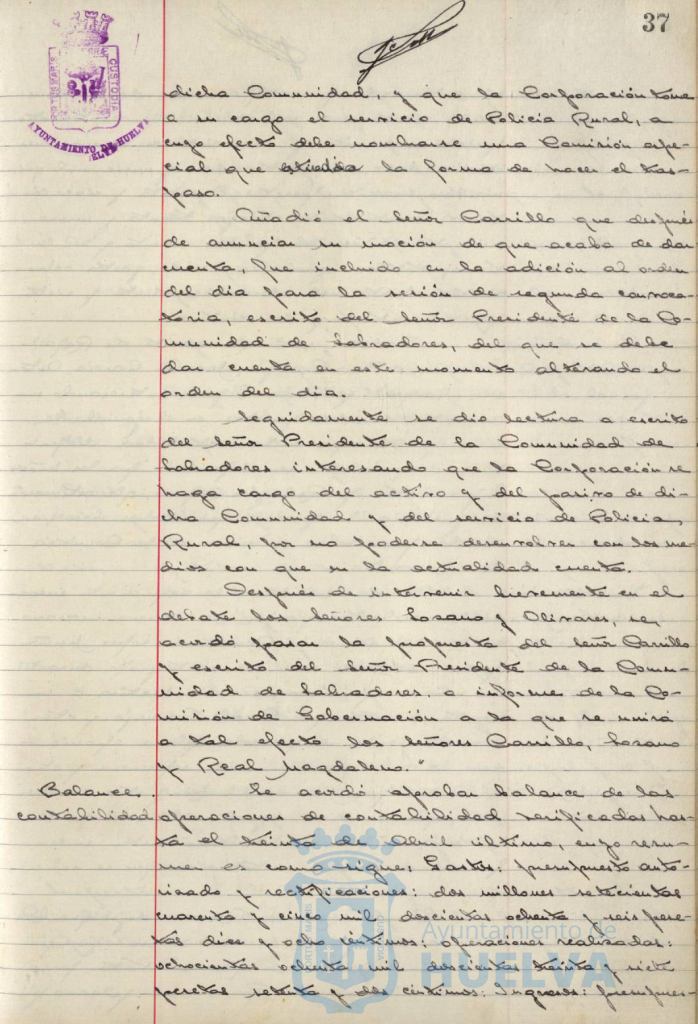 37
PORTUS MARIS
CUSTODIA
AYUNTAMIENTO DE HUELVA
HUELVA
dicha Comunidad, y que la Corporación tome
a su cargo el servicio de Policía Rural, a
cuyo efecto debe nombrarse una Comisión espe-
cial que estudie la forma de hacer el tras-
paso.
Añadió el Señor Carrillo que después
de anunciar su moción de que acaba de dar
cuenta, fue incluido en la adición al orden
del día para la sesión de segunda convoca-
toria, escrito del Señor Presidente de la Co-
munidad de Labradores, del que se debe
dar cuenta en este momento alterando el
orden del día.
Seguidamente se dio lectura a escrito
del Señor Presidente de la Comunidad de
Labradores interesando que la Corporación se
haga cargo del activo y del pasivo de di-
cha Comunidad y del servicio de Policía
Rural, por no poderse desenvolver con los me-
dios con que en la actualidad cuenta.
Después de intervenir brevemente en el
debate los Señores Lozano y Olivares, se
acordó pasar la propuesta del Señor Carrillo
y escrito del Señor Presidente de la Comu-
nidad de Labradores, a informe de la Co-
misión de Gobernación a la que se unirá
a tal efecto los Señores Carrillo, Lozano
y Real Magdaleno."
Balance contabilidad
Se acordó aprobar balance de las
operaciones de contabilidad verificadas has-
ta el treinta de Abril último, cuyo resu-
men es como sigue; Gastos: presupuesto auto-
rizado y rectificaciones: dos millones setecientas
cuarenta y cinco mil doscientas ochenta y seis pese-
tas diez y ocho céntimos: operaciones realizadas:
ochocientas ochenta mil doscientas treinta y siete
pesetas setenta y dos céntimos: Ingresos: presupues-
Ayuntamiento de
HUELVA